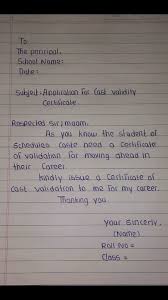 To
The principal,
School Name:
Date:
Subject: Application for Cast validity
Certificate.
Respected Sir/maam.
As you know the student of
schedules caste need a certificate
of validation for moving ahead in
their career.
kindly issue a certificate of
cast validation to me for my career.
Thanking you
Your Sincerly,
(Name)
Roll No =
Class =